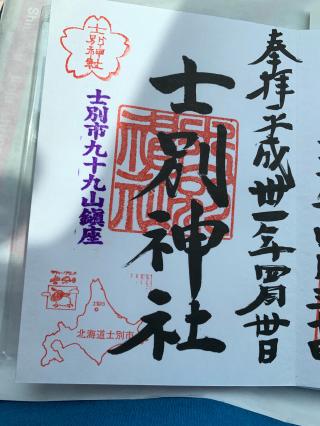 奉拝 平成卅一年四月卅日
士別神社
士別神社
士別市九十九山鎮座
北海道士別市